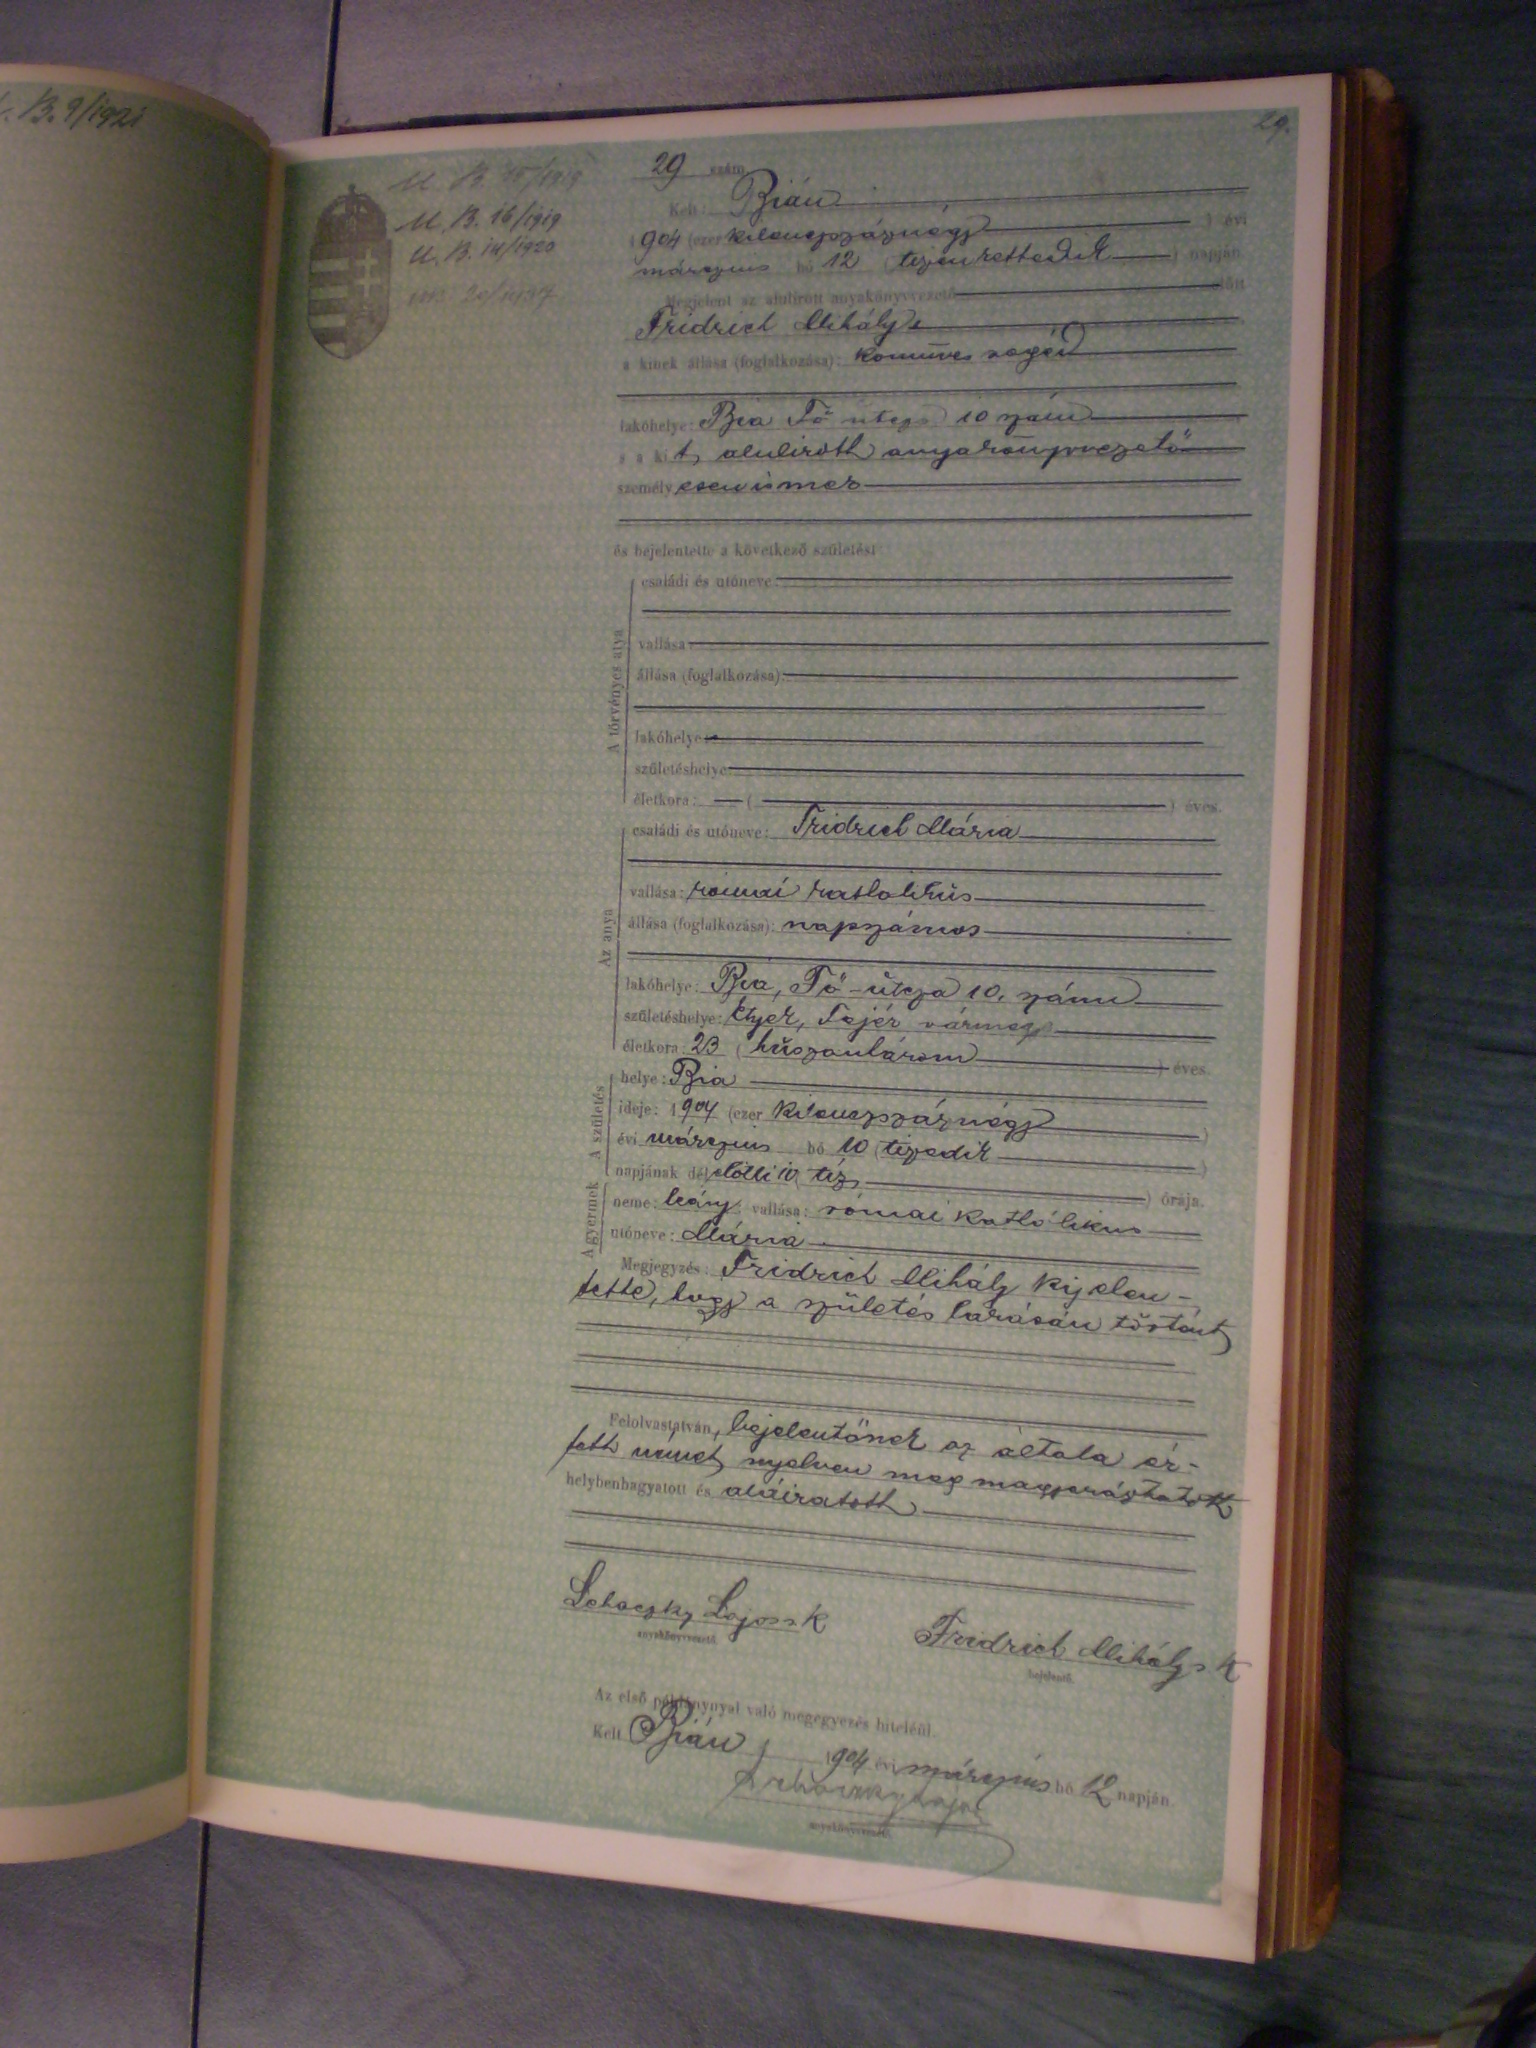 B. 9/1921
29.
U. B. 15/1919
U. B. 16/1919
U. B. 14/1920
29 szám
Kelt: Bián
1904 (ezer kilenczszáznégy) évi
márczius hó 12 (tizenkettedik) napján
Megjelent az alulirott anyakönyvvezető előtt
Fridrich Mihály,
a kinek állása (foglalkozása): kőmüves segéd
lakóhelye: Bia Fő utcza 10 szám
s a kit, alulirott anyakönyvvezető
személyesen ismer
és bejelentette a következő születést
A törvényes atya
családi és utóneve:
vallása:
állása (foglalkozása):
lakóhelye:
születéshelye:
életkora: — ( — ) éves.
Az anya
családi és utóneve: Fridrich Mária
vallása: római katholikus
állása (foglalkozása): napszámos
lakóhelye: Bia, Fő-utcza 10. szám
születéshelye: Etyek, Fejér vármegye
életkora: 23 (huszonhárom) éves.
A születés
helye: Bia
ideje: 1904 (ezer kilenczszáznégy)
évi márczius hó 10 (tizedik)
napjának délelőtti 10 (tíz) órája.
A gyermek
neme: leány vallása: római katholikus
utóneve: Mária
Megjegyzés: Fridrich Mihály kijelen-
tette, hogy a születés lakásán történt
Felolvastatván, bejelentőnek az általa ér-
tett német nyelven megmagyaráztatott
helybenhagyatott és aláiratott
Lehoczky Lajos sk
anyakönyvvezető
Fridrich Mihály s k
bejelentő.
Az első példánynyal való megegyezés hiteléül.
Kelt Bián, 1904 évi márczius hó 12 napján.
Lehoczky Lajos
anyakönyvvezető.